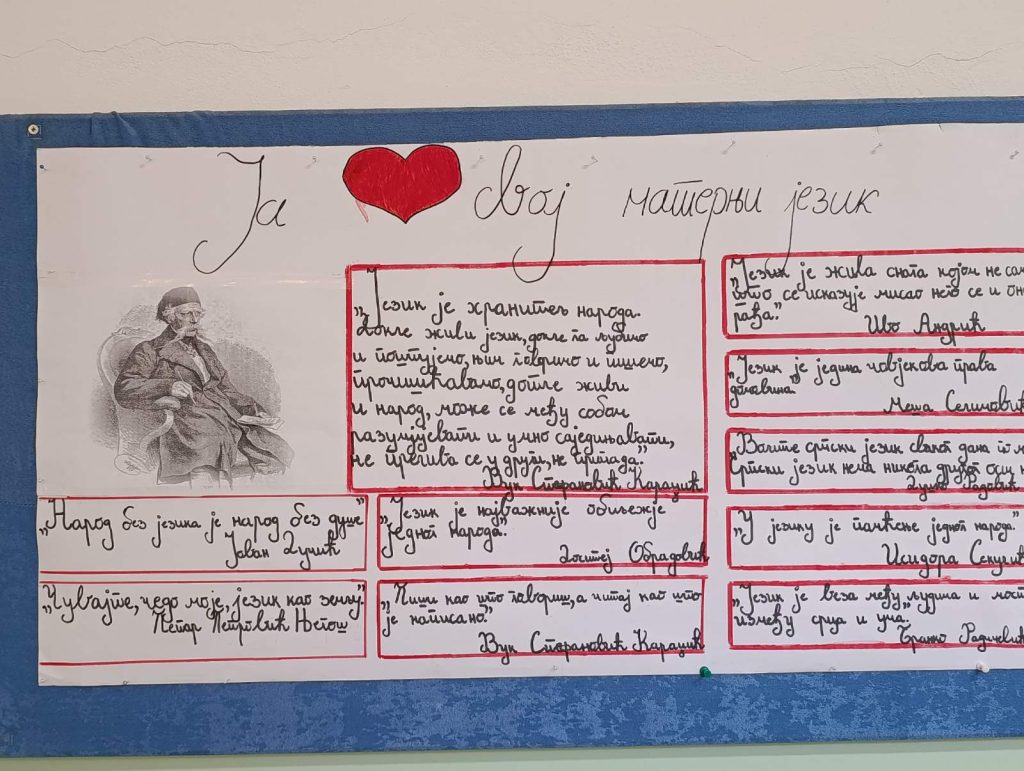 Ја свој матерњи језик
„Језик је хранитељ народа.
Докле живи језик, докле га љубимо
и поштујемо, њим говоримо и пишемо,
прочишћавамо, дотле живи
и народ, може се међу собом
разумјевати и умно саједињавати,
не прелива се у други, не пропада.”
Вук Стефановић Караџић
„Народ без језика је народ без душе”
Јован Дучић
„Чувајте, чедо моје, језик као земљу.”
Петар Петровић Његош
„Језик је најважније обиљежје
једног народа.”
Доситеј Обрадовић
„Пиши као што говориш, а читај као што
је написано.”
Вук Стефановић Караџић
„Језик је жива снага којом не сам
што се исказује мисао него се и он
рађа.”
Иво Андрић
„Језик је једина човјекова права
домовина”
Меша Селимовић
„Волите српски језик сваког дана
Српски језик нема никога другог осим
Душко Радовић
„У језику је памћење једног народа.”
Исидора Секулић
„Језик је веза међу људима и мост
између срца и ума.”
Бранко Радичевић